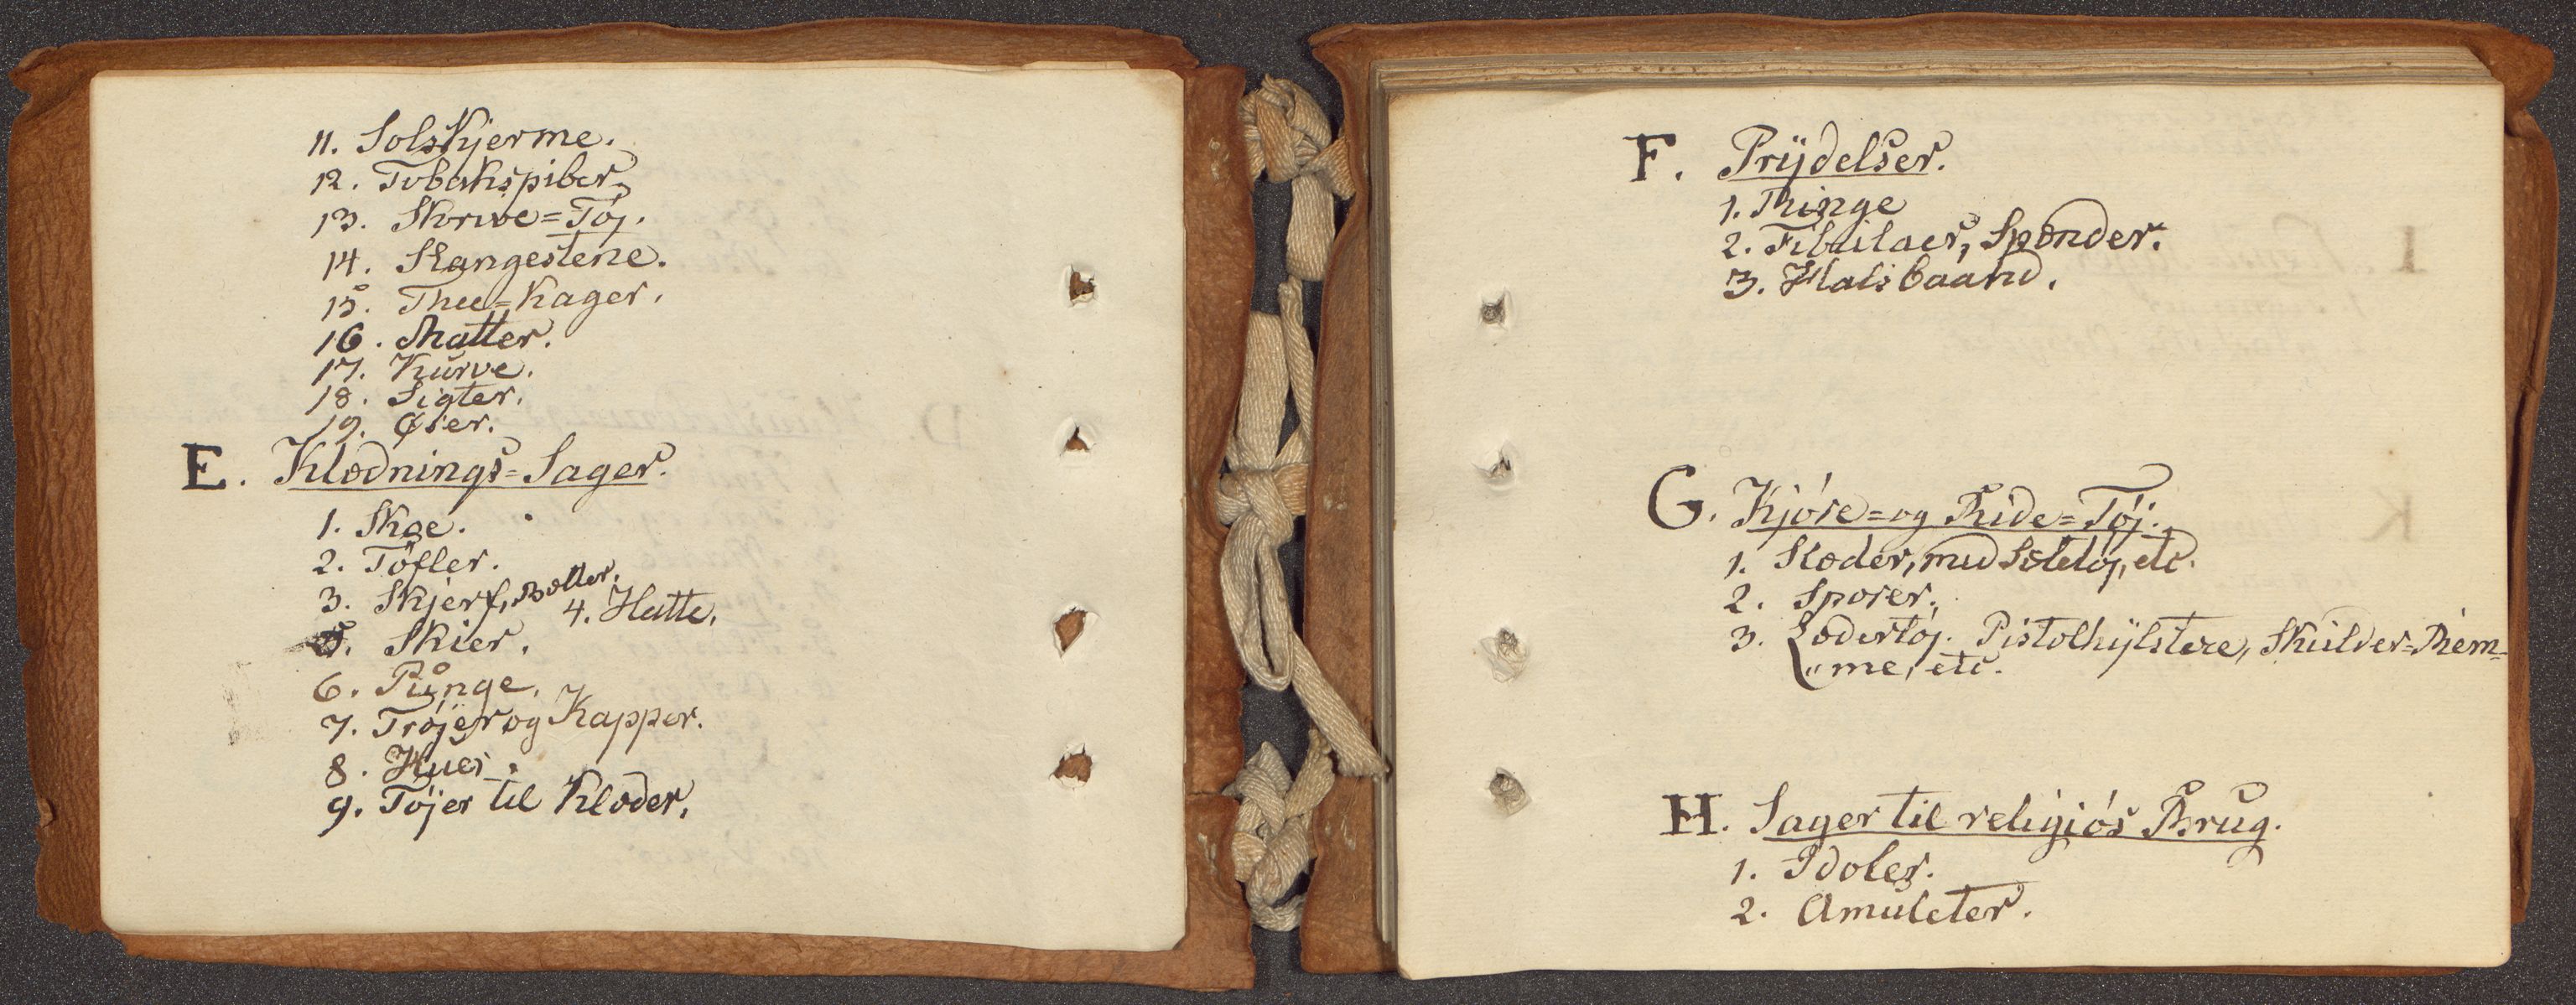 11. Solskjerme.
12. Tobakspiber.
13. Skrive=Töj.
14. Stangestene.
15. Thee=Kager.
16. Matter.
17. Kurve.
18. Sigter.
19. Øser.
E. Klædnings=Sager.
1. Skoe.
2. Töfler.
3. Skjerf, Bælter.
4. Hatte.
5. Skier.
6. Punge.
7. Tröjer og Kapper.
8. Huer.
9. Töjer til Klæder.
F. Prÿdelser.
1. Ringe
2. Fibulaer, Spænder.
3. Halsbaand.
G. Kjöre= og Ride=Töj.
1. Slæder, med Seletöj, etc.
2. Sporer.
3. Lædertöj. Pistolhÿlstere, Skulder=Rem=
"me, etc.
H. Sager til religiös Brug.
1. Idoler.
2. Amuleter.